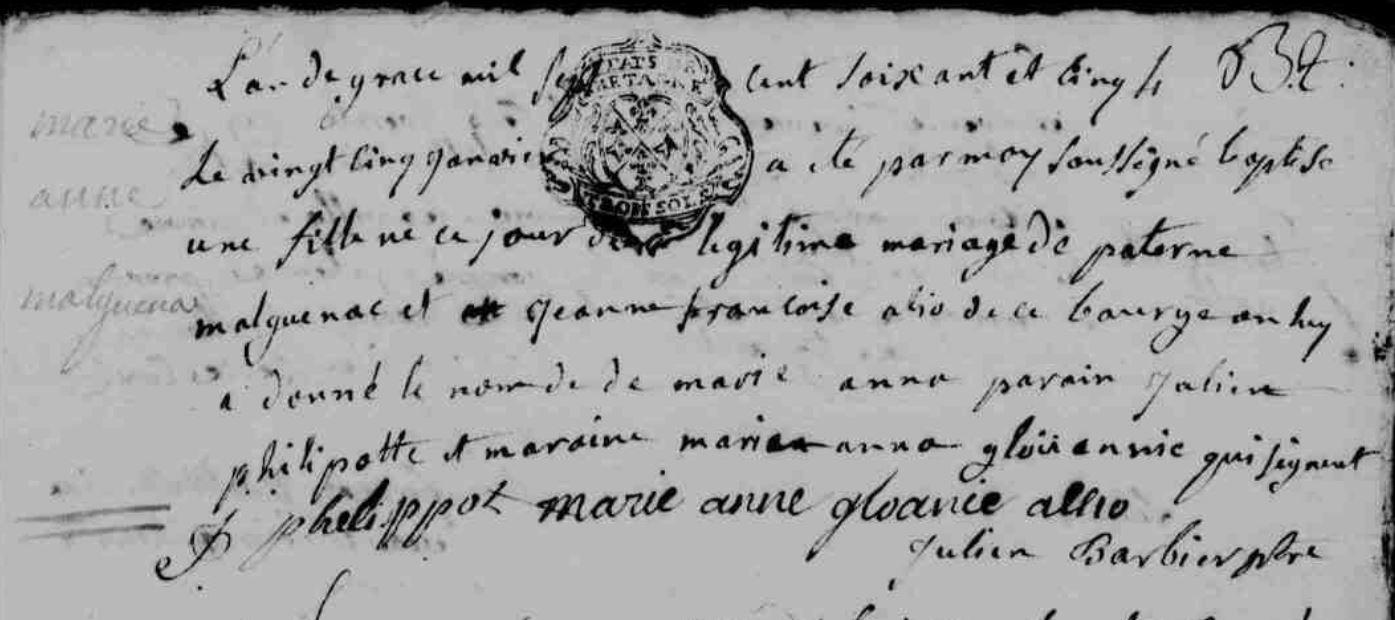 L'an de grace mil sept cent soixant et cinq B.t.
marie
Le vingt cinq janvier a été par moy soussigné baptisé
anne
une fille né ce jour du legitime mariage de paterne
malguenac
malguenac et jeanne francoise alio de ce bourg
a donné le nom de de marie anna parain Julien
philipotte et maraine marie anna glouannic qui signent
J phelippot marie anne gloanic allio
Julien Barbier ptre
ETATS DE
BRETAGNE
TROIS SOLS